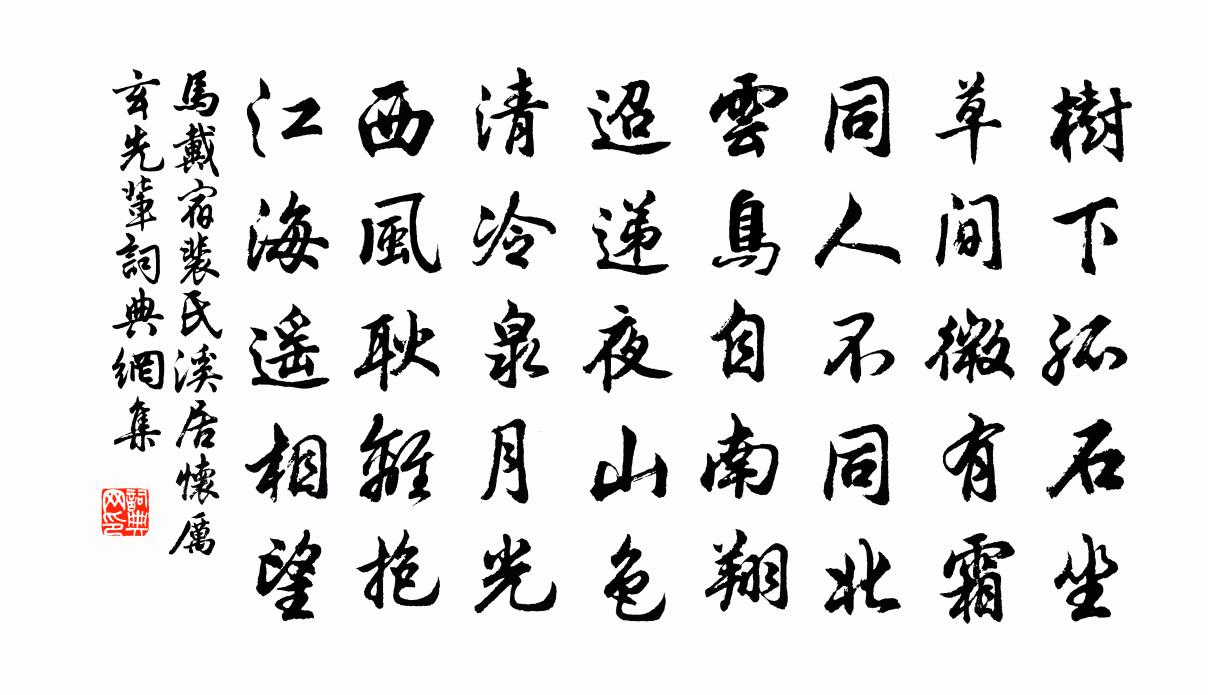 樹下孤石坐
草间微有霜
同人不同北
雲鳥自南翔
迢递夜山色
清冷泉月光
西風耿離抱
江海遥相望
馬戴宿裴氏溪居懷厲
玄先輩詞典網集
詞典
网印